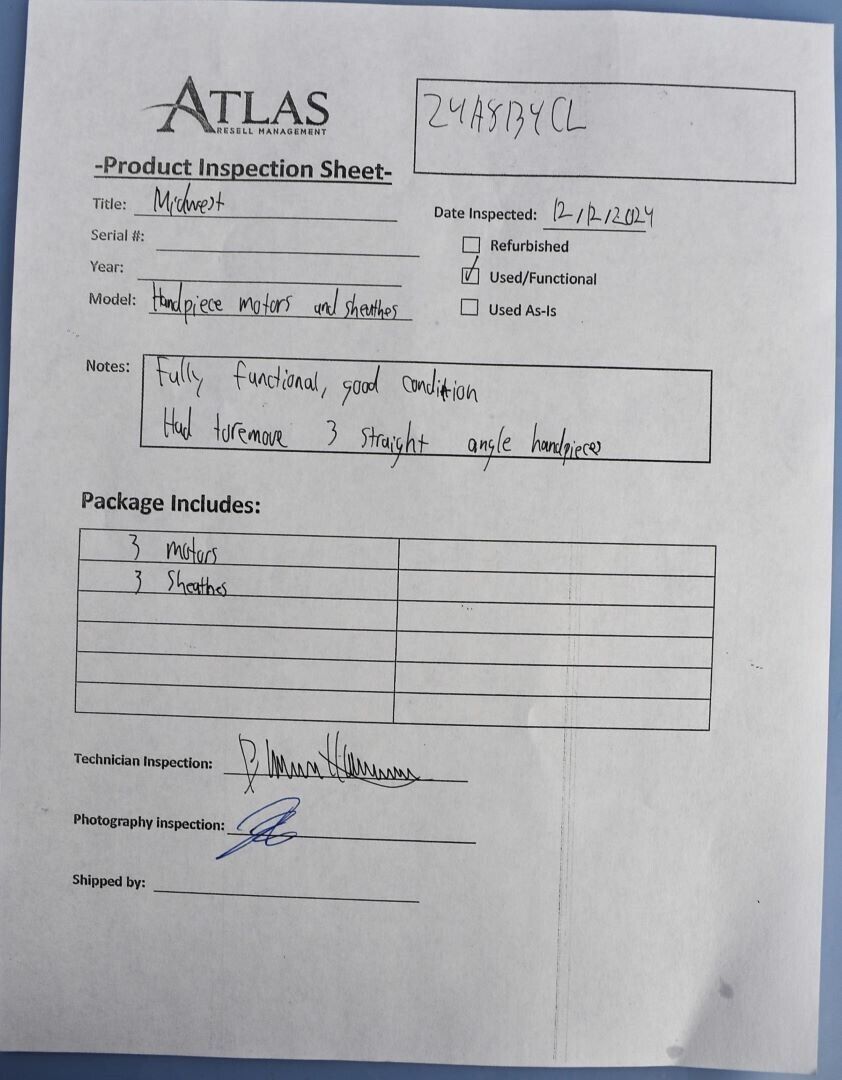 ATLAS
RESELL MANAGEMENT
24A8134CL
-Product Inspection Sheet-
Title: Midwest
Date Inspected: 12/12/2024
Serial #:
Refurbished
Year:
Used/Functional
Model: Handpiece motors and sheathes
Used As-Is
Notes: Fully functional, good condition
Had toremove 3 straight angle handpieces
Package Includes:
3 motors
3 Sheathes
Technician Inspection:
Photography inspection:
Shipped by: